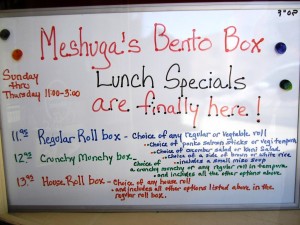 Meshuga's Bento Box
Sunday
thru
Thursday 11:00-3:00
Lunch Specials
are finally here!
11.95 Regular Roll box - Choice of any regular or vegtable roll
- Choice of panko salmon sticks or vegi tempura
- Choice of cucumber salad or Kani Salad
- Choice of a side of brown or white rice
- includes a small miso soup
12.95 Crunchy Munchy box - Choice of a crunchy munchy or any regular roll in tempura
and includes all the other options above
13.95 House Roll box - Choice of any house roll
- and includes all other options listed above in the
regular roll box.